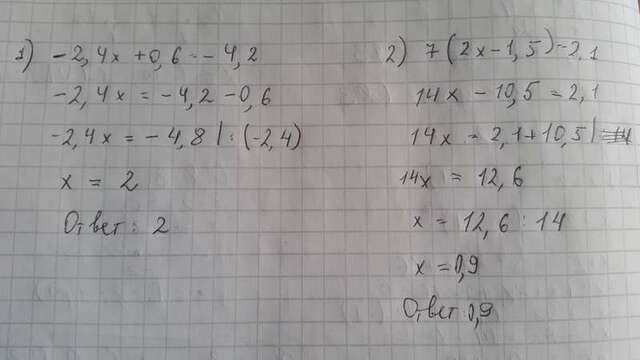 1) -2,4x + 0,6 = -4,2
-2,4x = -4,2 - 0,6
-2,4x = -4,8 | : (-2,4)
x = 2
Ответ: 2
2) 7(2x - 1,5) = 2,1
14x - 10,5 = 2,1
14x = 2,1 + 10,5 |
14x = 12,6
x = 12,6 : 14
x = 0,9
Ответ: 0,9